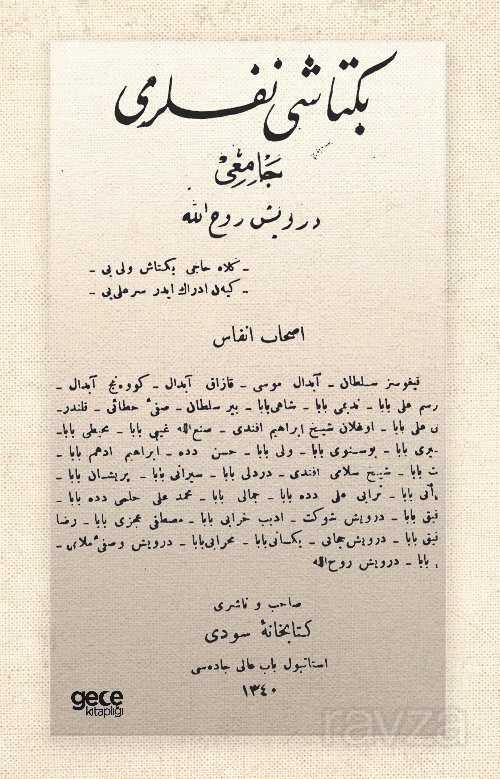 بكتاشی نفسلری
جامعی
درویش روح الله
ـ كلاه حاجی بكتاش ولی یی ـ
ـ كیه‌ن ادراك ایدر سر علی یی ـ
اصحاب انفاس
قیغوسز سلطان ـ آبدال موسی ـ قازاق آبدال ـ كووه‌نج آبدال ـ
رسم علی بابا ـ ندیمی بابا ـ شاهی بابا ـ پیر سلطان ـ صفیٔ خطائی ـ قلندر ـ
ی علی بابا ـ اوغلان شیخ ابراهیم افندی ـ صنع‌الله غیبی بابا ـ محیطی بابا ـ
یری بابا ـ بوسنوی بابا ـ ولی بابا ـ حسن دده ـ ابراهیم ادهم بابا ـ
ت بابا ـ شیخ سلامی افندی ـ دردلی بابا ـ سیرانی بابا ـ پریشان بابا ـ
بابا ـ ترابی علی دده بابا ـ جمالی بابا ـ محمد علی حلمی دده بابا ـ
فیق بابا ـ درویش شوكت ـ ادیب خرابی بابا ـ مصطفی عجزی بابا ـ رضا
فیق بابا ـ درویش ـ یكسانی بابا ـ محرابی بابا ـ درویش وصفیٔ ملامی ـ
بابا ـ درویش روح الله
صاحب و ناشری
كتابخانهٔ سودی
استانبول باب عالی جاده‌سی
١٣٤٠
gece
kitaplığı
ravza